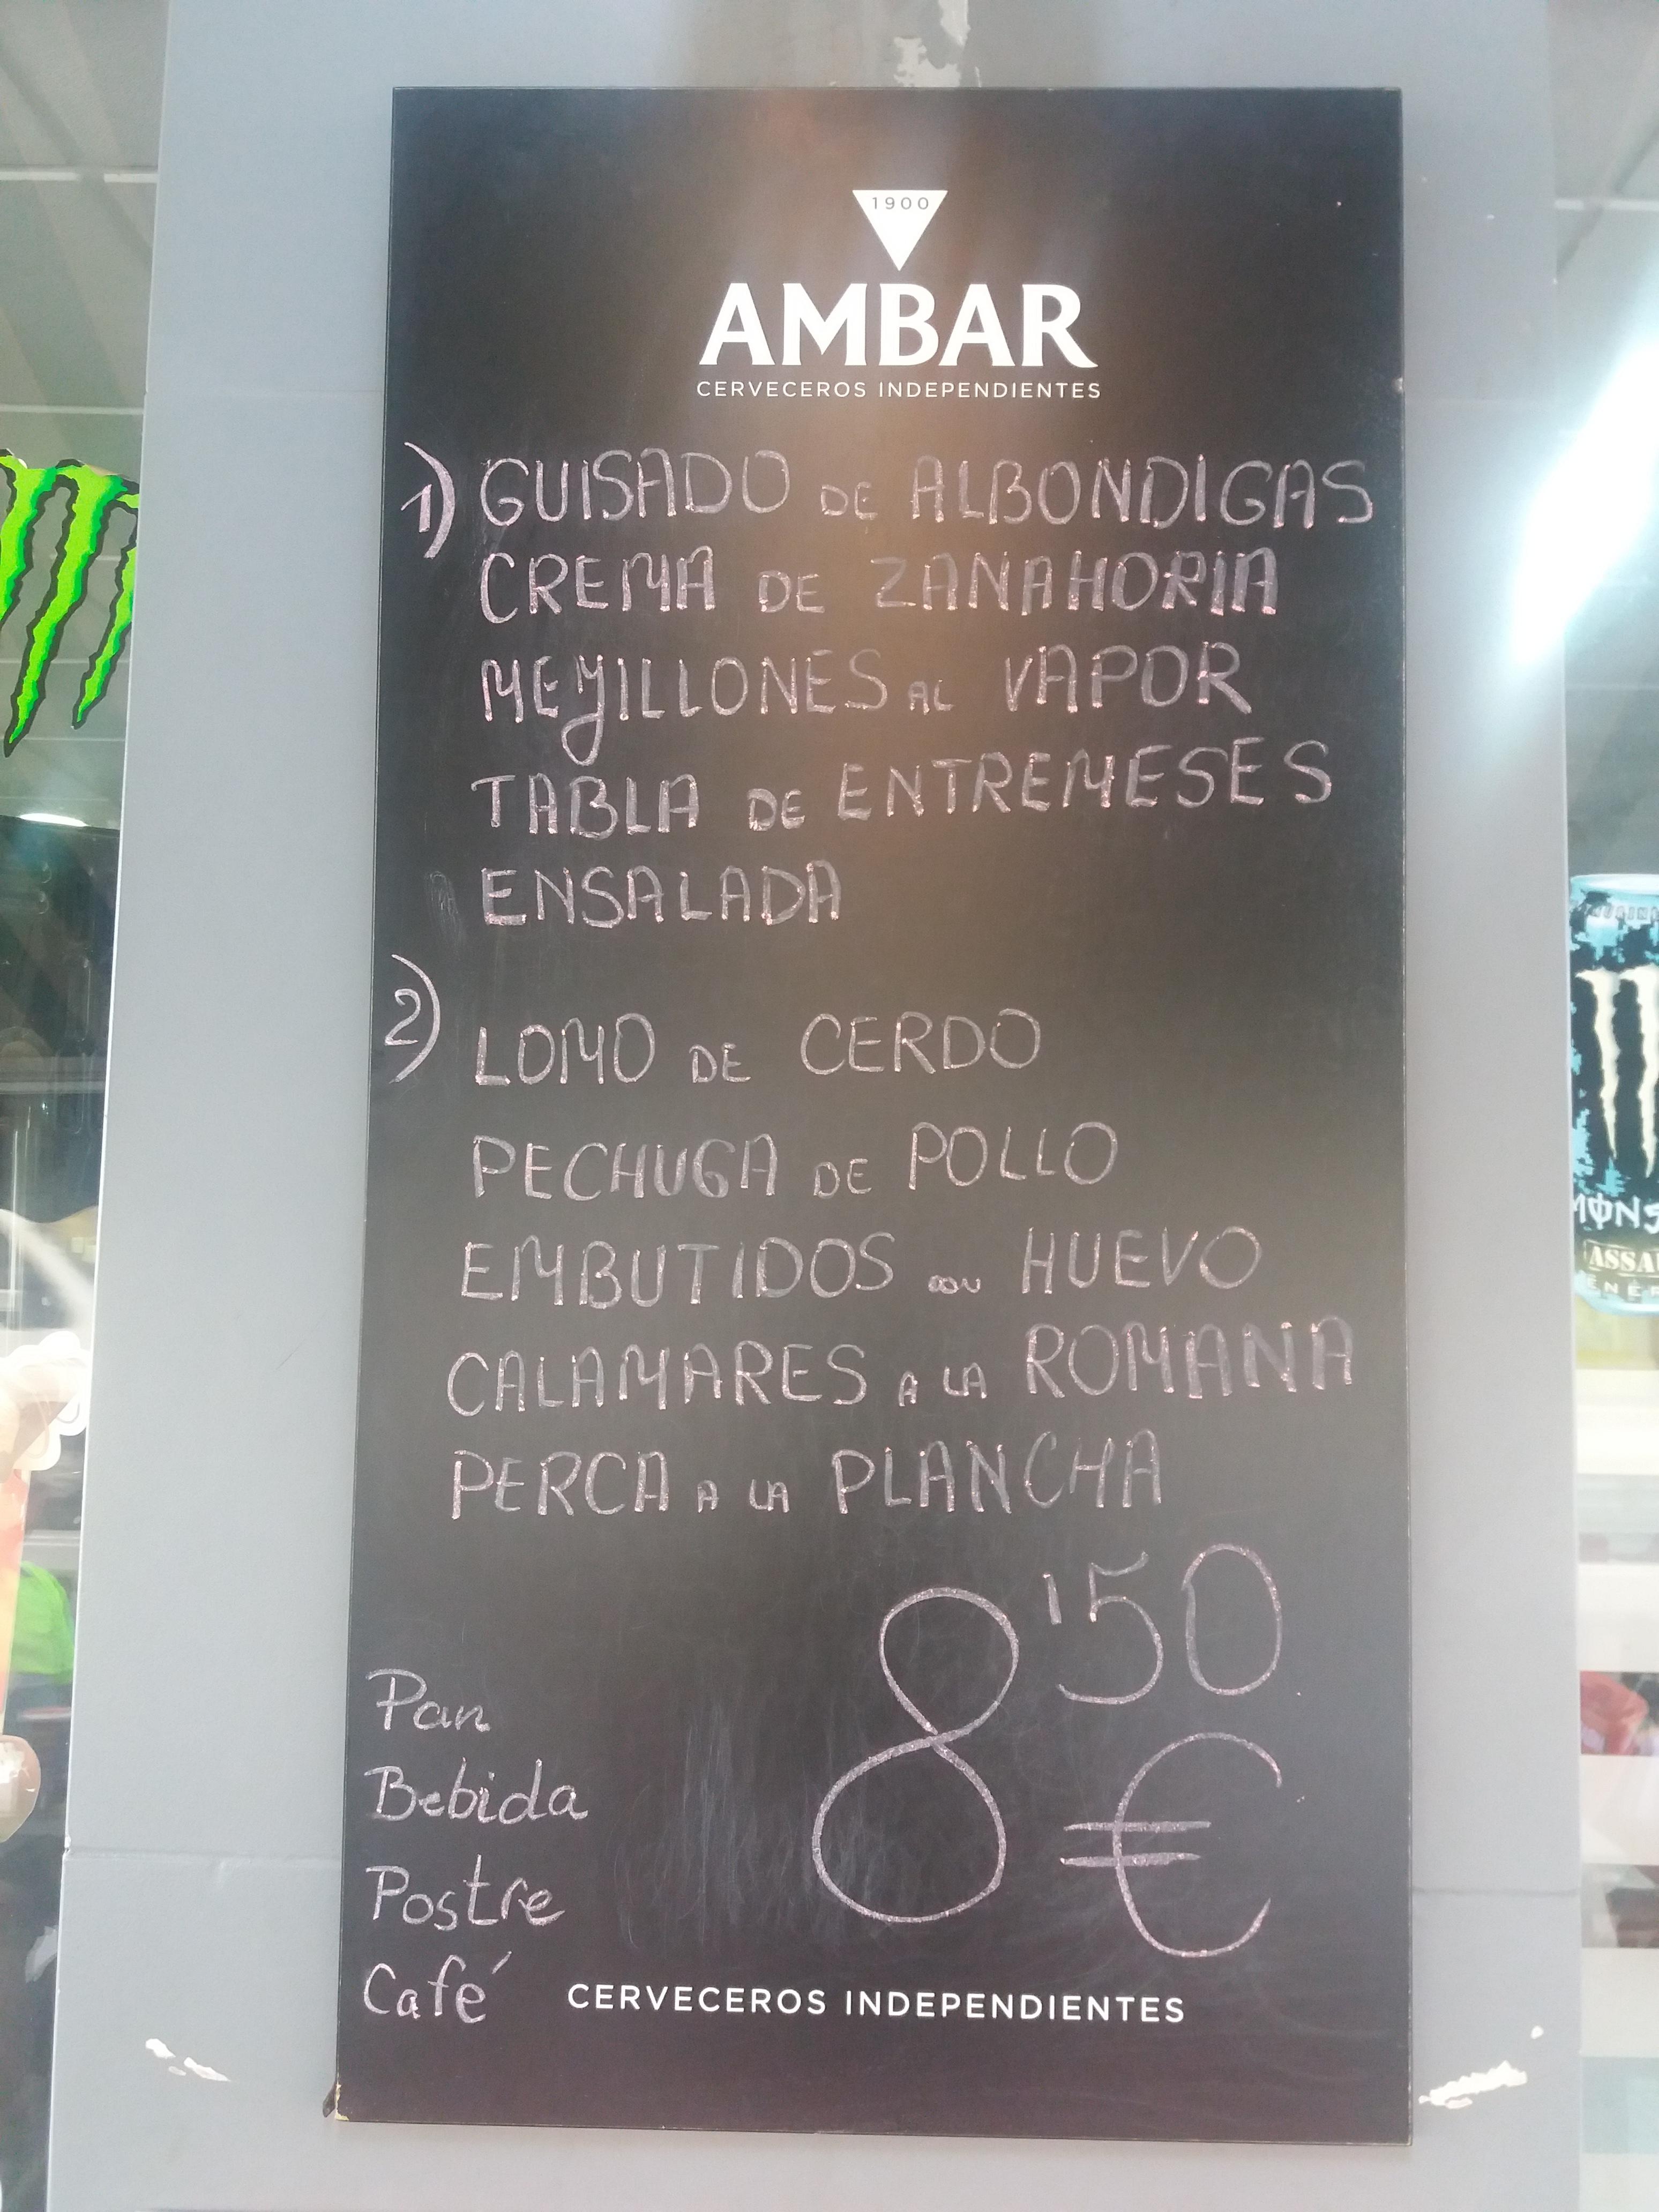 1900
AMBAR
CERVECEROS INDEPENDIENTES
1) GUISADO DE ALBONDIGAS
CREMA DE ZANAHORIA
MEJILLONES AL VAPOR
TABLA DE ENTREMESES
ENSALADA
2) LOMO DE CERDO
PECHUGA DE POLLO
EMBUTIDOS CON HUEVO
CALAMARES A LA ROMANA
PERCA A LA PLANCHA
8'50
€
Pan
Bebida
Postre
Café
CERVECEROS INDEPENDIENTES